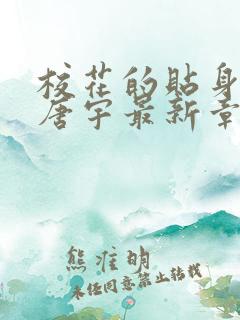 校花的贴身
唐宇最新章
熊准明
未经同意禁止转载